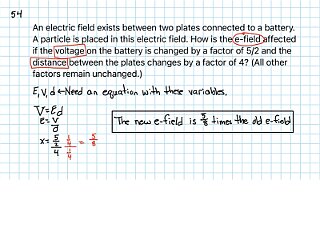 54
An electric field exists between two plates connected to a battery.
A particle is placed in this electric field. How is the e-field affected
if the voltage on the battery is changed by a factor of 5/2 and the
distance between the plates changes by a factor of 4? (All other
factors remain unchanged.)
E,V,d ←Need an equation with these variables.
V=Ed
e=V/d
The new e-field is 5/8 times the old e-field
= 5/8